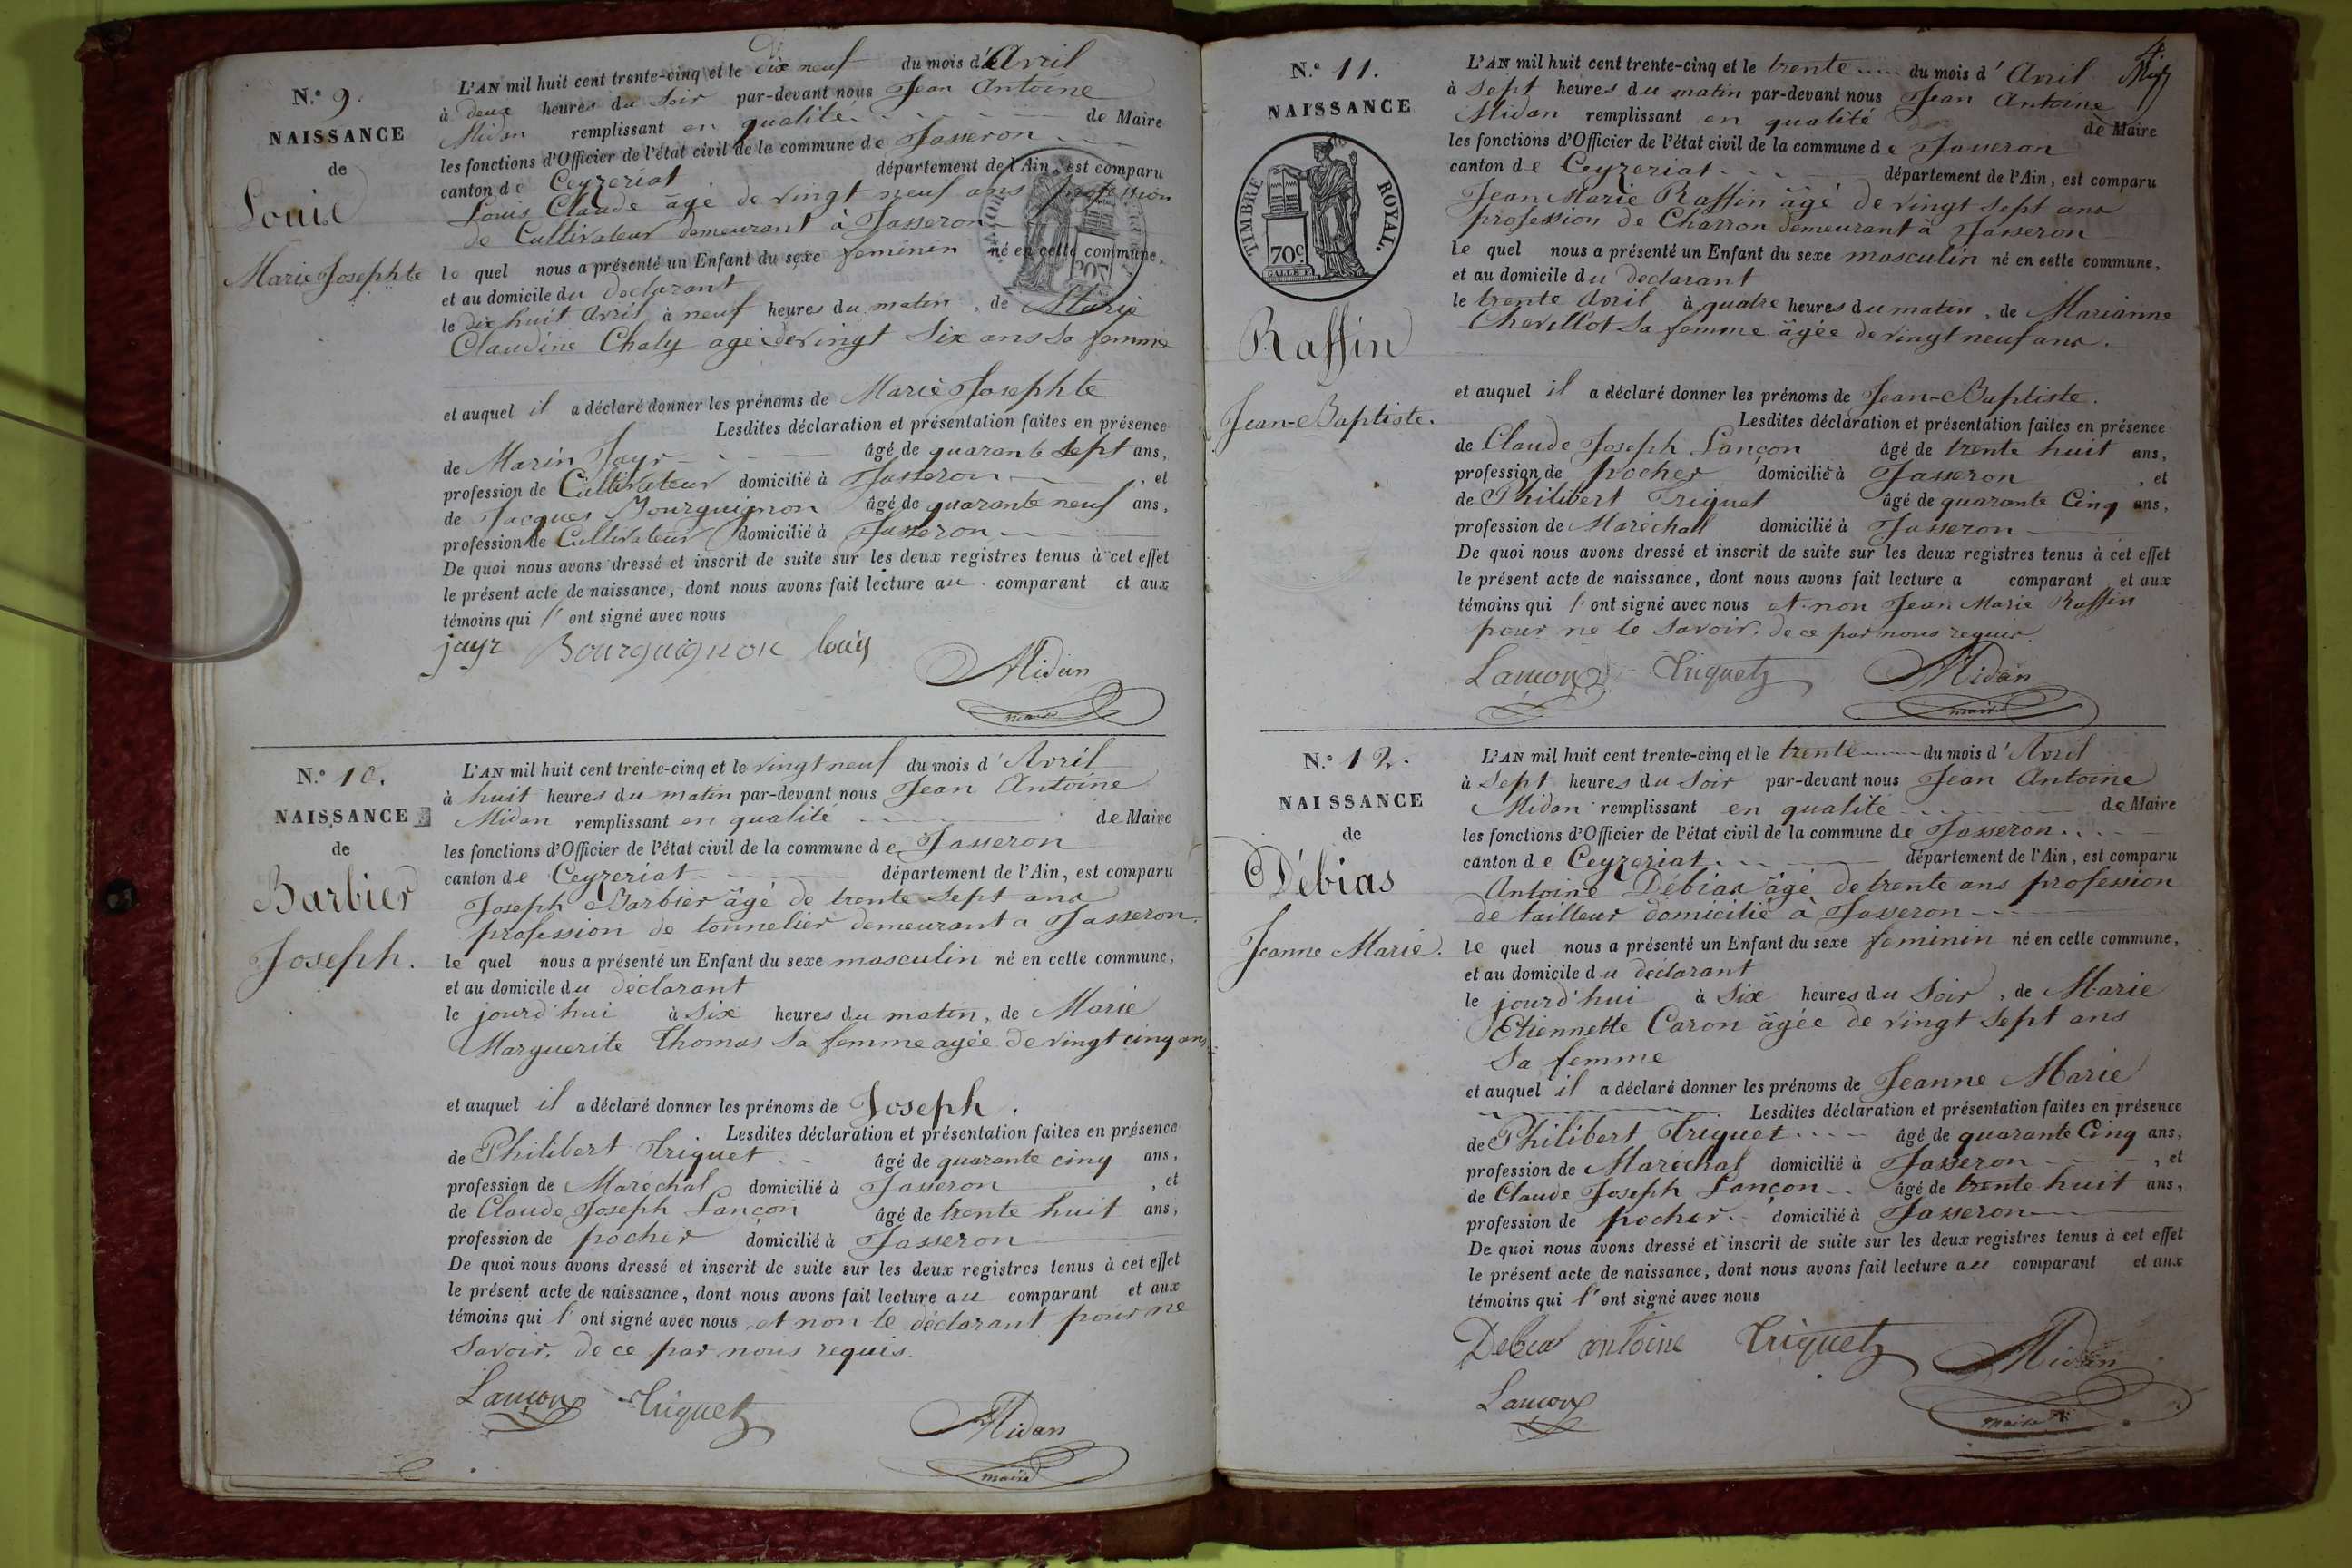 N.° 9.
NAISSANCE
de
Louis
Marie Josephte
L'AN mil huit cent trente-cinq et le dix neuf du mois d'Avril
à deux heures du soir par-devant nous Jean Antoine
Midan remplissant en qualité de Maire
les fonctions d'Officier de l'état civil de la commune de Jasseron
canton de Ceyzeriat département de l'Ain, est comparu
Louis Claude âgé de vingt neuf ans profession
de Cultivateur demeurant à Jasseron
le quel nous a présenté un Enfant du sexe feminin né en cette commune,
et au domicile du declarant
le dix huit Avril à neuf heures du matin, de Marie
Claudine Chaly agée de vingt six ans sa femme
et auquel il a déclaré donner les prénoms de Marie Josephte
Lesdites déclaration et présentation faites en présence
de Marin Jayr âgé de quarante sept ans,
profession de Cultivateur domicilié à Jasseron, et
de Jacques Bourguignon âgé de quarante neuf ans,
profession de Cultivateur domicilié à Jasseron
De quoi nous avons dressé et inscrit de suite sur les deux registres tenus à cet effet
le présent acte de naissance, dont nous avons fait lecture au comparant et aux
témoins qui l'ont signé avec nous
jayr Bourguignon louis
Midan
maire
N.° 10.
NAISSANCE
de
Barbier
Joseph.
L'AN mil huit cent trente-cinq et le vingt neuf du mois d'Avril
à huit heures du matin par-devant nous Jean Antoine
Midan remplissant en qualité de Maire
les fonctions d'Officier de l'état civil de la commune de Jasseron
canton de Ceyzeriat département de l'Ain, est comparu
Joseph Barbier âgé de trente sept ans
profession de tonnelier demeurant a Jasseron.
le quel nous a présenté un Enfant du sexe masculin né en cette commune,
et au domicile du déclarant
le jourd'hui à six heures du matin, de Marie
Marguerite Thomas sa femme agée de vingt cinq ans
et auquel il a déclaré donner les prénoms de Joseph.
Lesdites déclaration et présentation faites en présence
de Philibert Triquet âgé de quarante cinq ans,
profession de Maréchal domicilié à Jasseron, et
de Claude Joseph Lançon âgé de trente huit ans,
profession de pocher domicilié à Jasseron
De quoi nous avons dressé et inscrit de suite sur les deux registres tenus à cet effet
le présent acte de naissance, dont nous avons fait lecture au comparant et aux
témoins qui l'ont signé avec nous et non le déclarant pour ne
savoir, de ce par nous requis.
Lançon Triquet
Midan
maire
N.° 11.
NAISSANCE
de
TIMBRE ROYAL.
70c
Raffin
Jean-Baptiste.
L'AN mil huit cent trente-cinq et le trente du mois d'Avril
à sept heures du matin par-devant nous Jean Antoine
Midan remplissant en qualité de Maire
les fonctions d'Officier de l'état civil de la commune de Jasseron
canton de Ceyzeriat département de l'Ain, est comparu
Jean Marie Raffin âgé de vingt sept ans
profession de Charron demeurant à Jasseron
le quel nous a présenté un Enfant du sexe masculin né en cette commune,
et au domicile du declarant
le trente Avril à quatre heures du matin, de Marianne
Chevillot sa femme âgée de vingt neuf ans.
et auquel il a déclaré donner les prénoms de Jean-Baptiste.
Lesdites déclaration et présentation faites en présence
de Claude Joseph Lançon âgé de trente huit ans,
profession de pocher domicilié à Jasseron, et
de Philibert Triquet âgé de quarante Cinq ans,
profession de Maréchal domicilié à Jasseron
De quoi nous avons dressé et inscrit de suite sur les deux registres tenus à cet effet
le présent acte de naissance, dont nous avons fait lecture a comparant et aux
témoins qui l'ont signé avec nous et non Jean Marie Raffin
pour ne le savoir, de ce par nous requis.
Lançon Triquet Midan
maire
N.° 12.
NAISSANCE
de
Débias
Jeanne Marie.
L'AN mil huit cent trente-cinq et le trente du mois d'Avril
à sept heures du soir par-devant nous Jean Antoine
Midan remplissant en qualité de Maire
les fonctions d'Officier de l'état civil de la commune de Jasseron
canton de Ceyzeriat département de l'Ain, est comparu
Antoine Débias âgé de trente ans profession
de tailleur domicilié à Jasseron
le quel nous a présenté un Enfant du sexe feminin né en cette commune,
et au domicile du declarant
le jourd'hui à six heures du soir, de Marie
Etiennette Caron âgée de vingt sept ans
sa femme
et auquel il a déclaré donner les prénoms de Jeanne Marie
Lesdites déclaration et présentation faites en présence
de Philibert Triquet âgé de quarante Cinq ans,
profession de Maréchal domicilié à Jasseron, et
de Claude Joseph Lançon âgé de trente huit ans,
profession de pocher domicilié à Jasseron
De quoi nous avons dressé et inscrit de suite sur les deux registres tenus à cet effet
le présent acte de naissance, dont nous avons fait lecture au comparant et aux
témoins qui l'ont signé avec nous
Debias antoine Triquet Midan
Lançon
maire